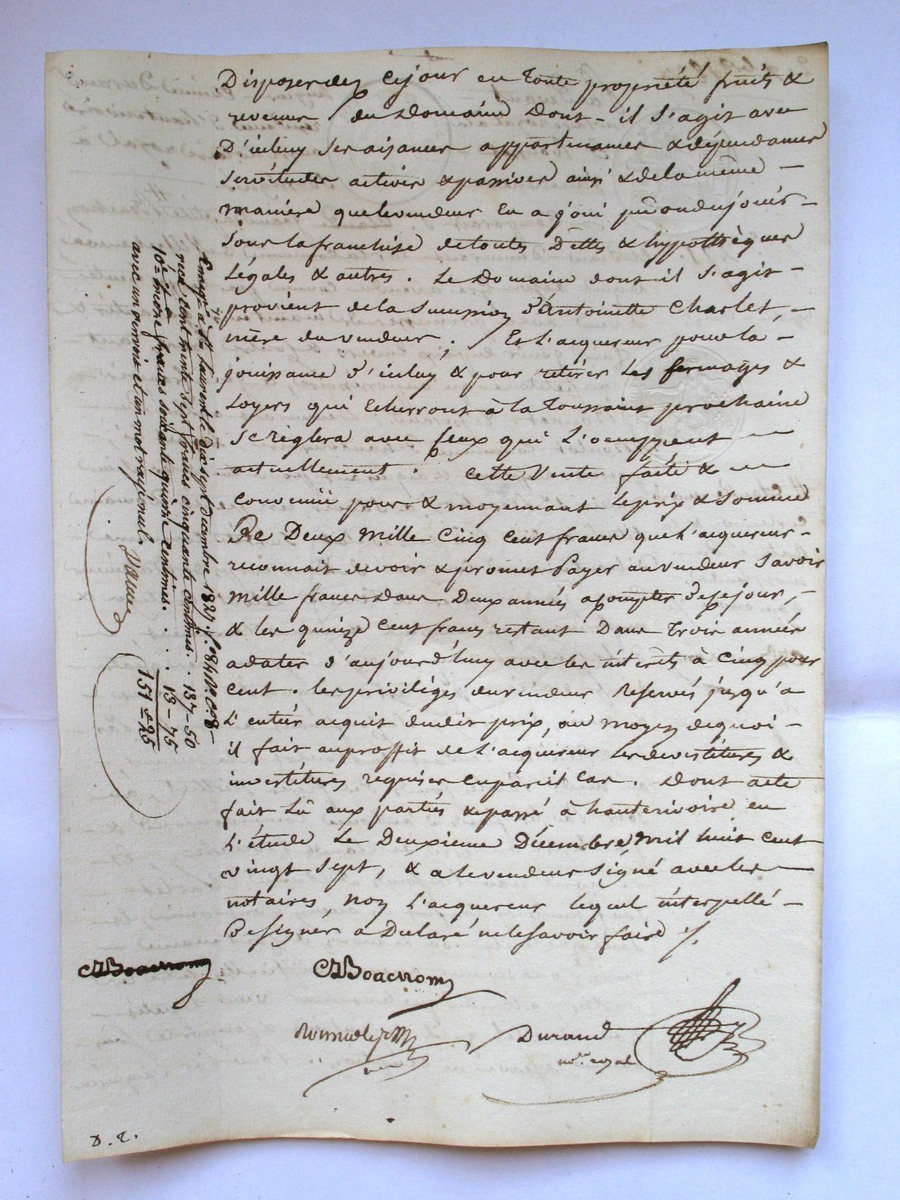 Disposer dez cejour en toute propriété fruits &
revenus du Domaine Dont il s'agit avec
D'icluy ses aisances appartenances & dépendances
servitudes actives & passives ainsi & de la même —
manière que le vendeur En a joui pû ou du jouir —
sous la franchise de toutes Dettes & hypothèques
Légales & autres. Le Domaine dont il s'agit —
provient de la succession d'Antoinette Charlet, —
mère du vendeur, Et L'acquereur pour la —
jouissance d'icluy & pour retirer Les fermages &
Loyers qui Echerront à la Toussaint prochaine
se règlera avec ceux qui L'occuppent —
actuellement. cette Vente faite & —
convenüe pour & moyennant Le prix & Somme
De Deux Mille Cinq Cent francs que L'acquereur —
reconnait devoir & promet Payer au vendeur Savoir
Mille francs Dans Deux années a compter De ce jour, —
& les quinze Cent francs restant Dans trois années
a dater d'aujourd'huy avec les intérêts à Cinq pour
Cent. les privilèges du vendeur Reservés jusqu'a
L'entier acquit dudit prix, au moyen de quoi —
il fait au proffit de L'acquereur Les devestitures &
investitures requises en pareil Cas. Dont acte
fait Lû aux parties & passé à hauterivoire en
L'étude Le Deuxieme Décembre Mil huit cent
vingt Sept, & a le vendeur Signé avec les
notaires, non L'acquereur lequel interpellé —
De Signer a Declaré ne le Savoir faire ./.
Boacrom
Boacrom
Durand
not.re royal
D. R.
Enregé à St Laurent le dix sept decembre 1827. f.° 84 R.° C. 8 —
reçu cent trente sept francs cinquante centimes. . 137 – 50
10.e treize francs soixante quinze centimes. . . . 13 – 75
151 – 25
avec un renvoi et un mot rayé nul.